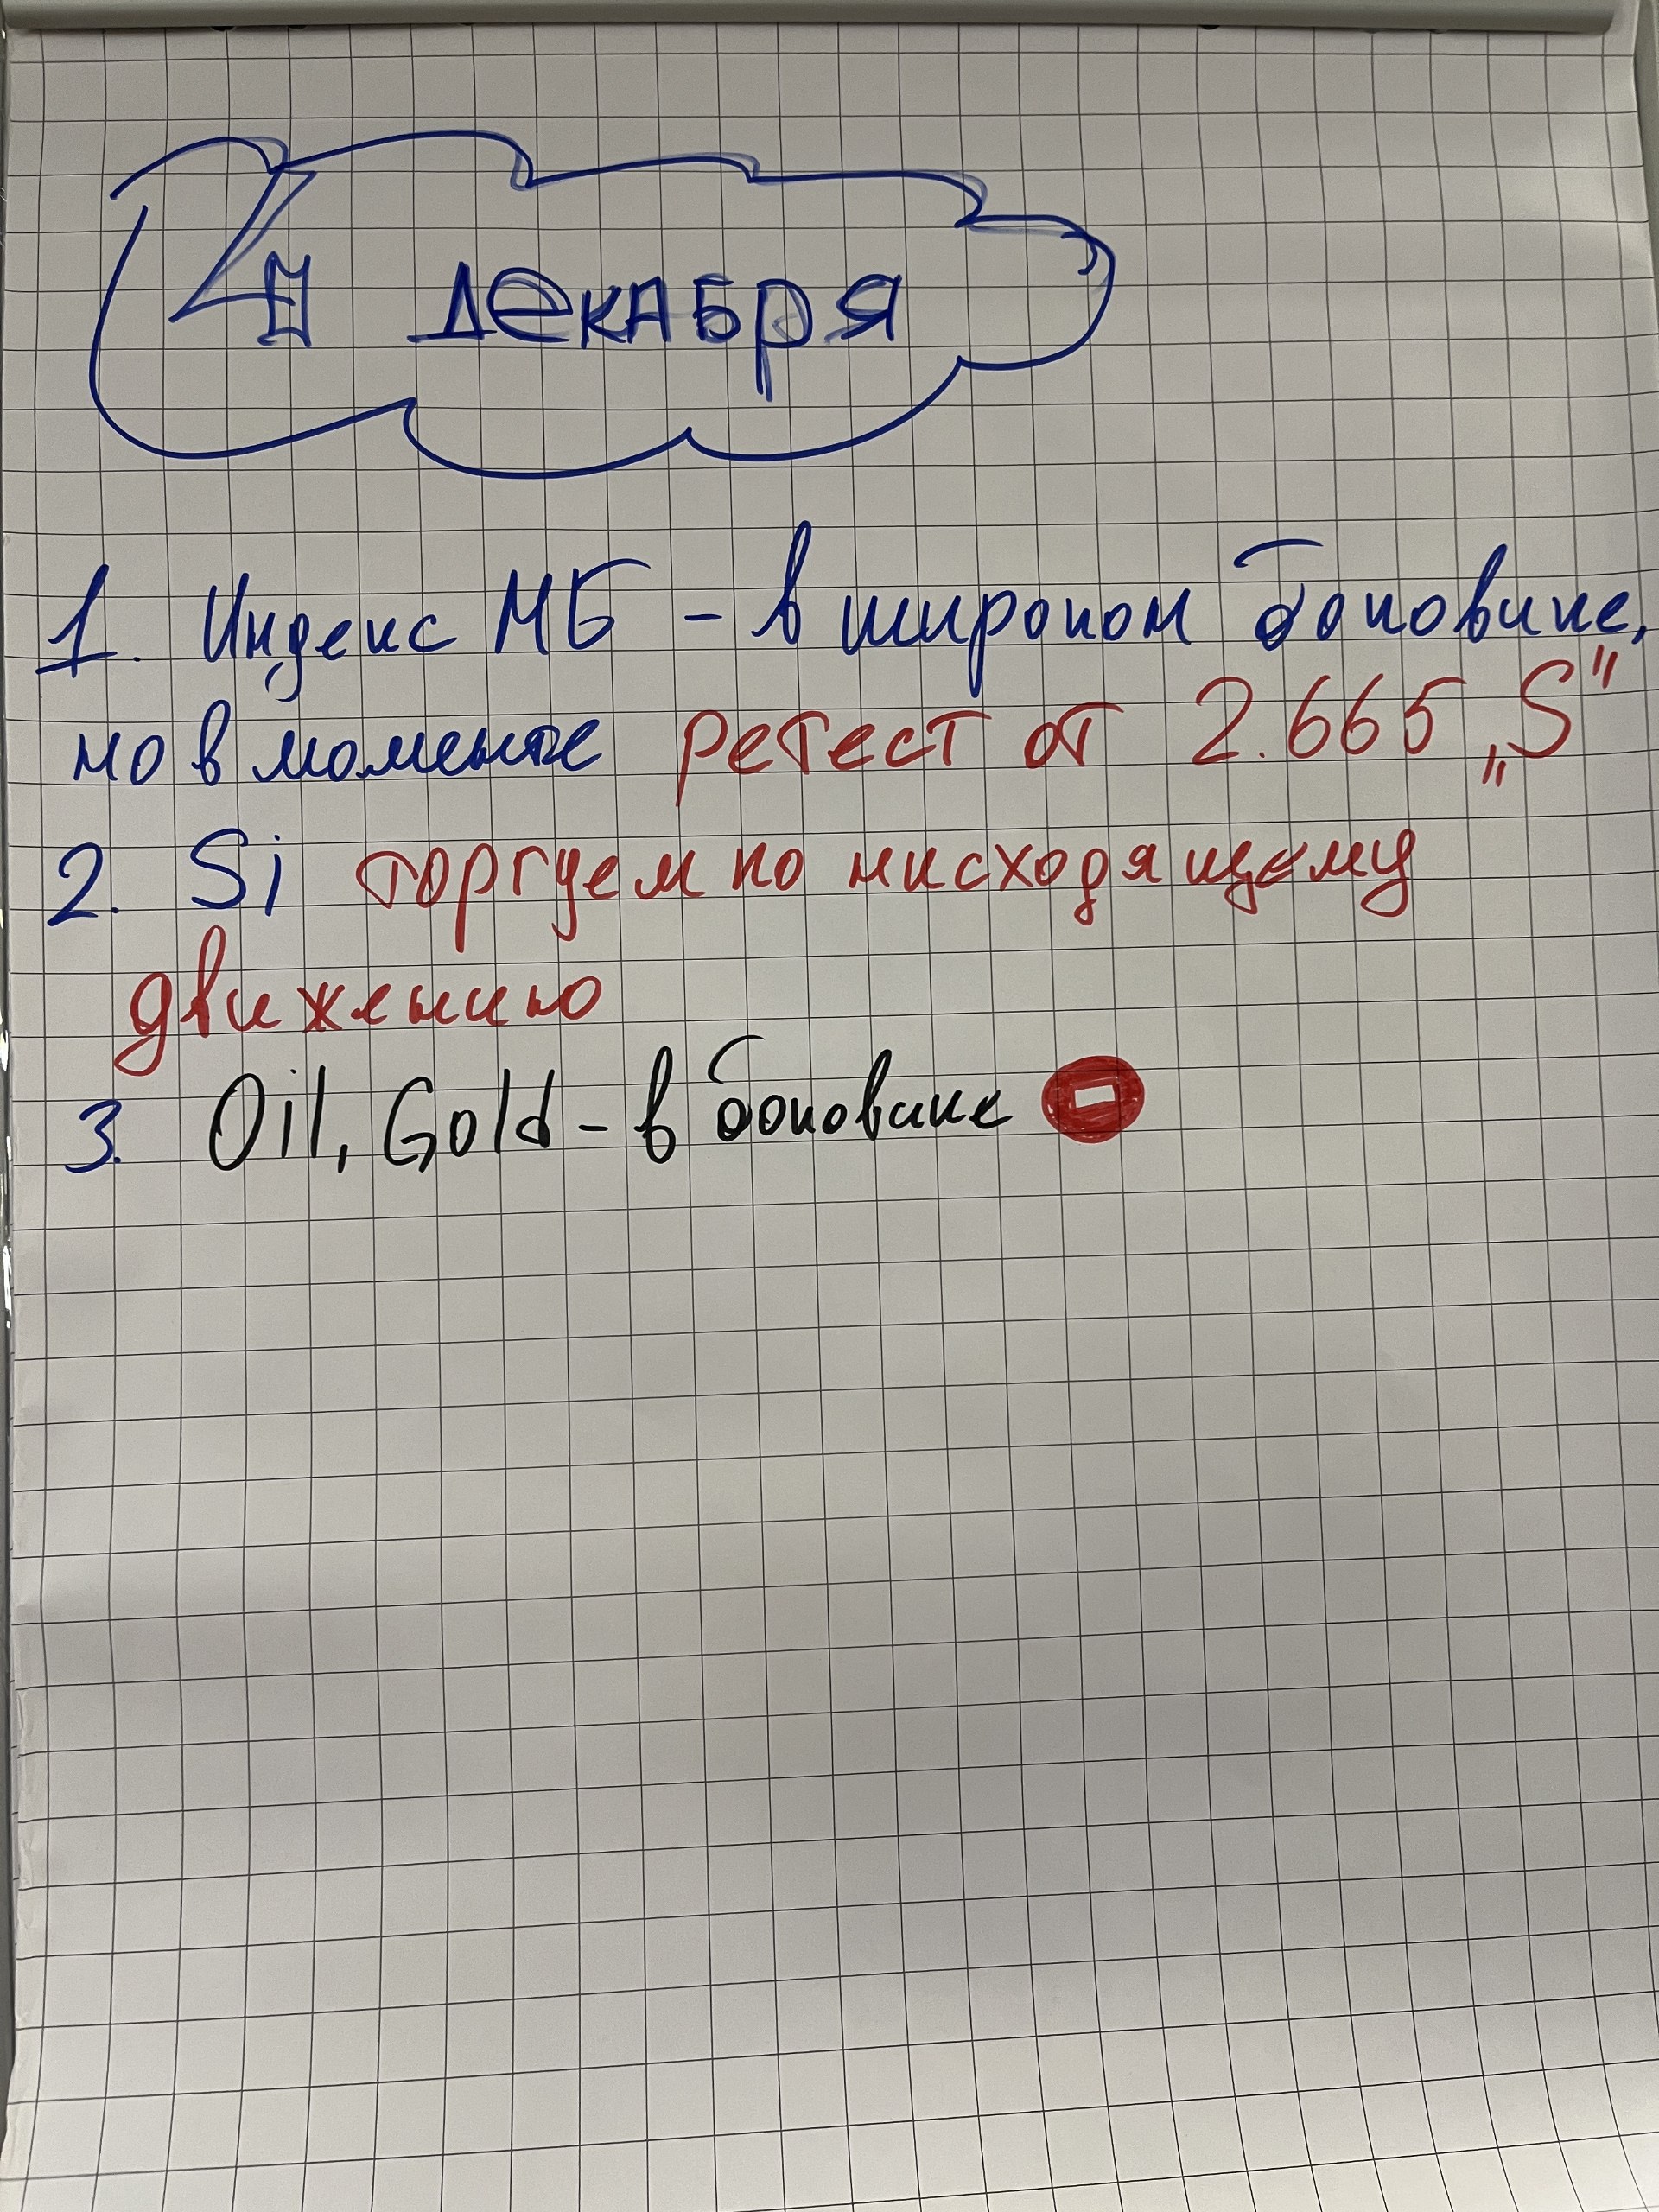 4 декабря
1. Индекс МБ - в широком боковике,
но в моменте ретест от 2.665 „S"
2. Si торгуем по нисходящему
движению
3. Oil, Gold - в боковике